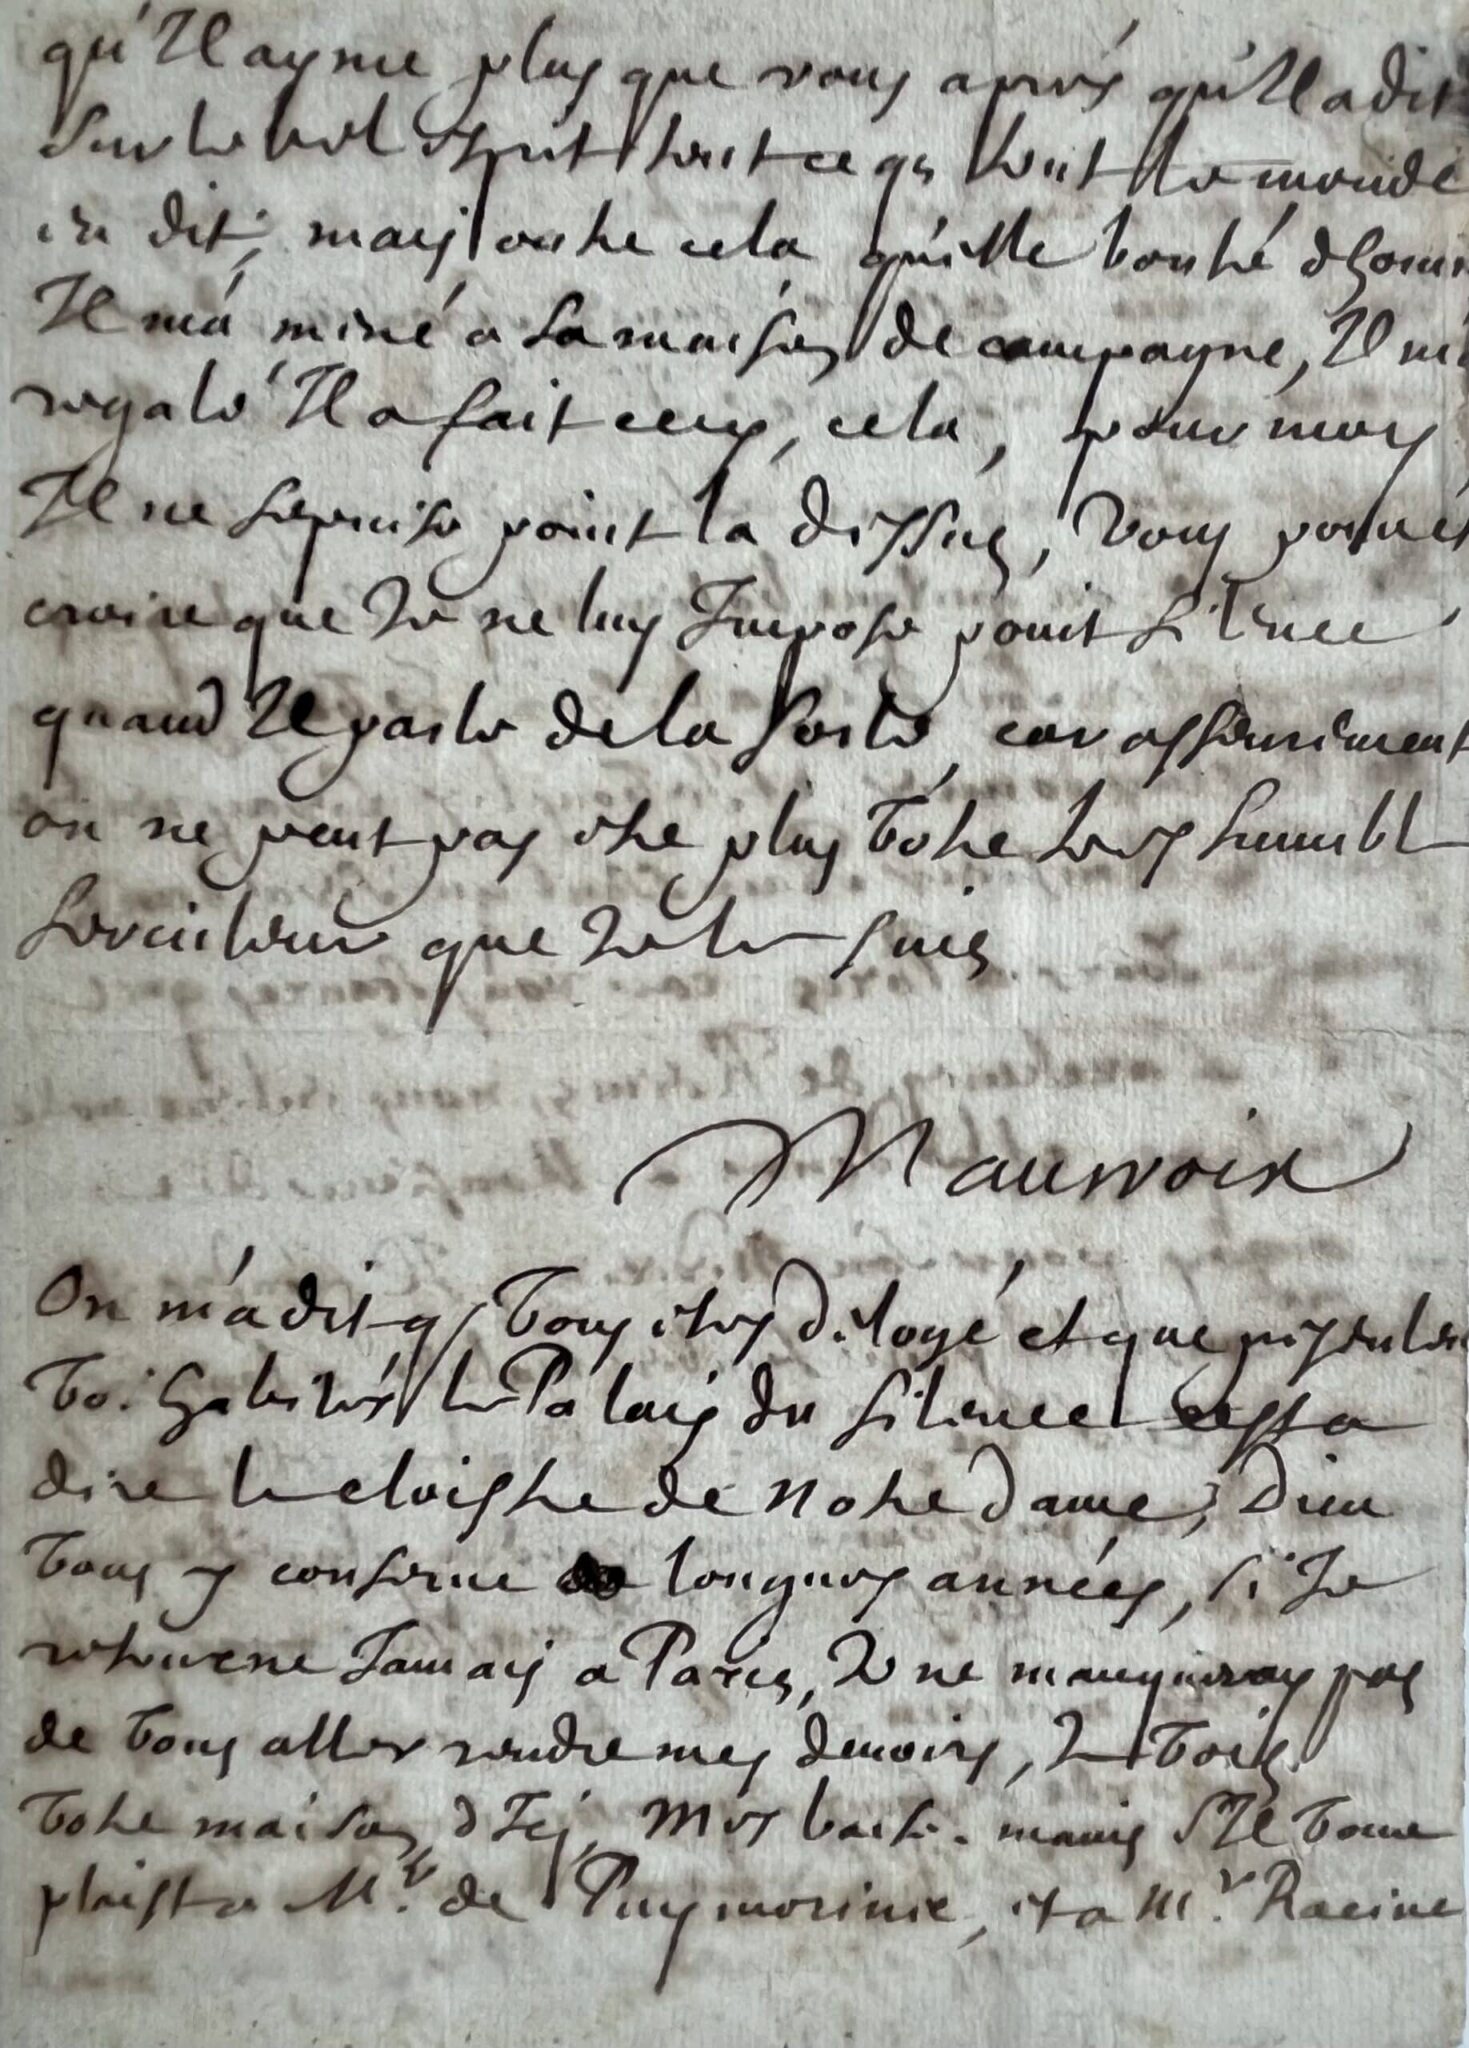 qu'Il ayme plus que vous aprés qu'Il a dit
sur le bel esprit tout ce q tout le monde
en dit, mais outre cela quelle bonté d'homm
Il m'a mené a sa maison de campagne, Il m'a
regalé Il a fait cecy, cela, pour moy
Il ne s'epuise point la dessus, vous pouués
croire que Je ne luy Impose point silence
quand Il parle de la sorte, car asseurément
on ne peut pas etre plus votre tres humble
seruiteur que Je le suis
Maucroix
On m'a dit q vous etes délogé et que
habités le Palais du silence cest a
dire le cloistre de Notre Dame, Dieu
vous y conserue longues années, si Je
retourne Jamais a Paris, Je ne manqueray pas
de vous aller rendre mes deuoirs, Je vois
votre maison d'Icy, Mes baise-mains s'Il vous
plaist a Mr. de Puymorinie, et a Mr. Racine